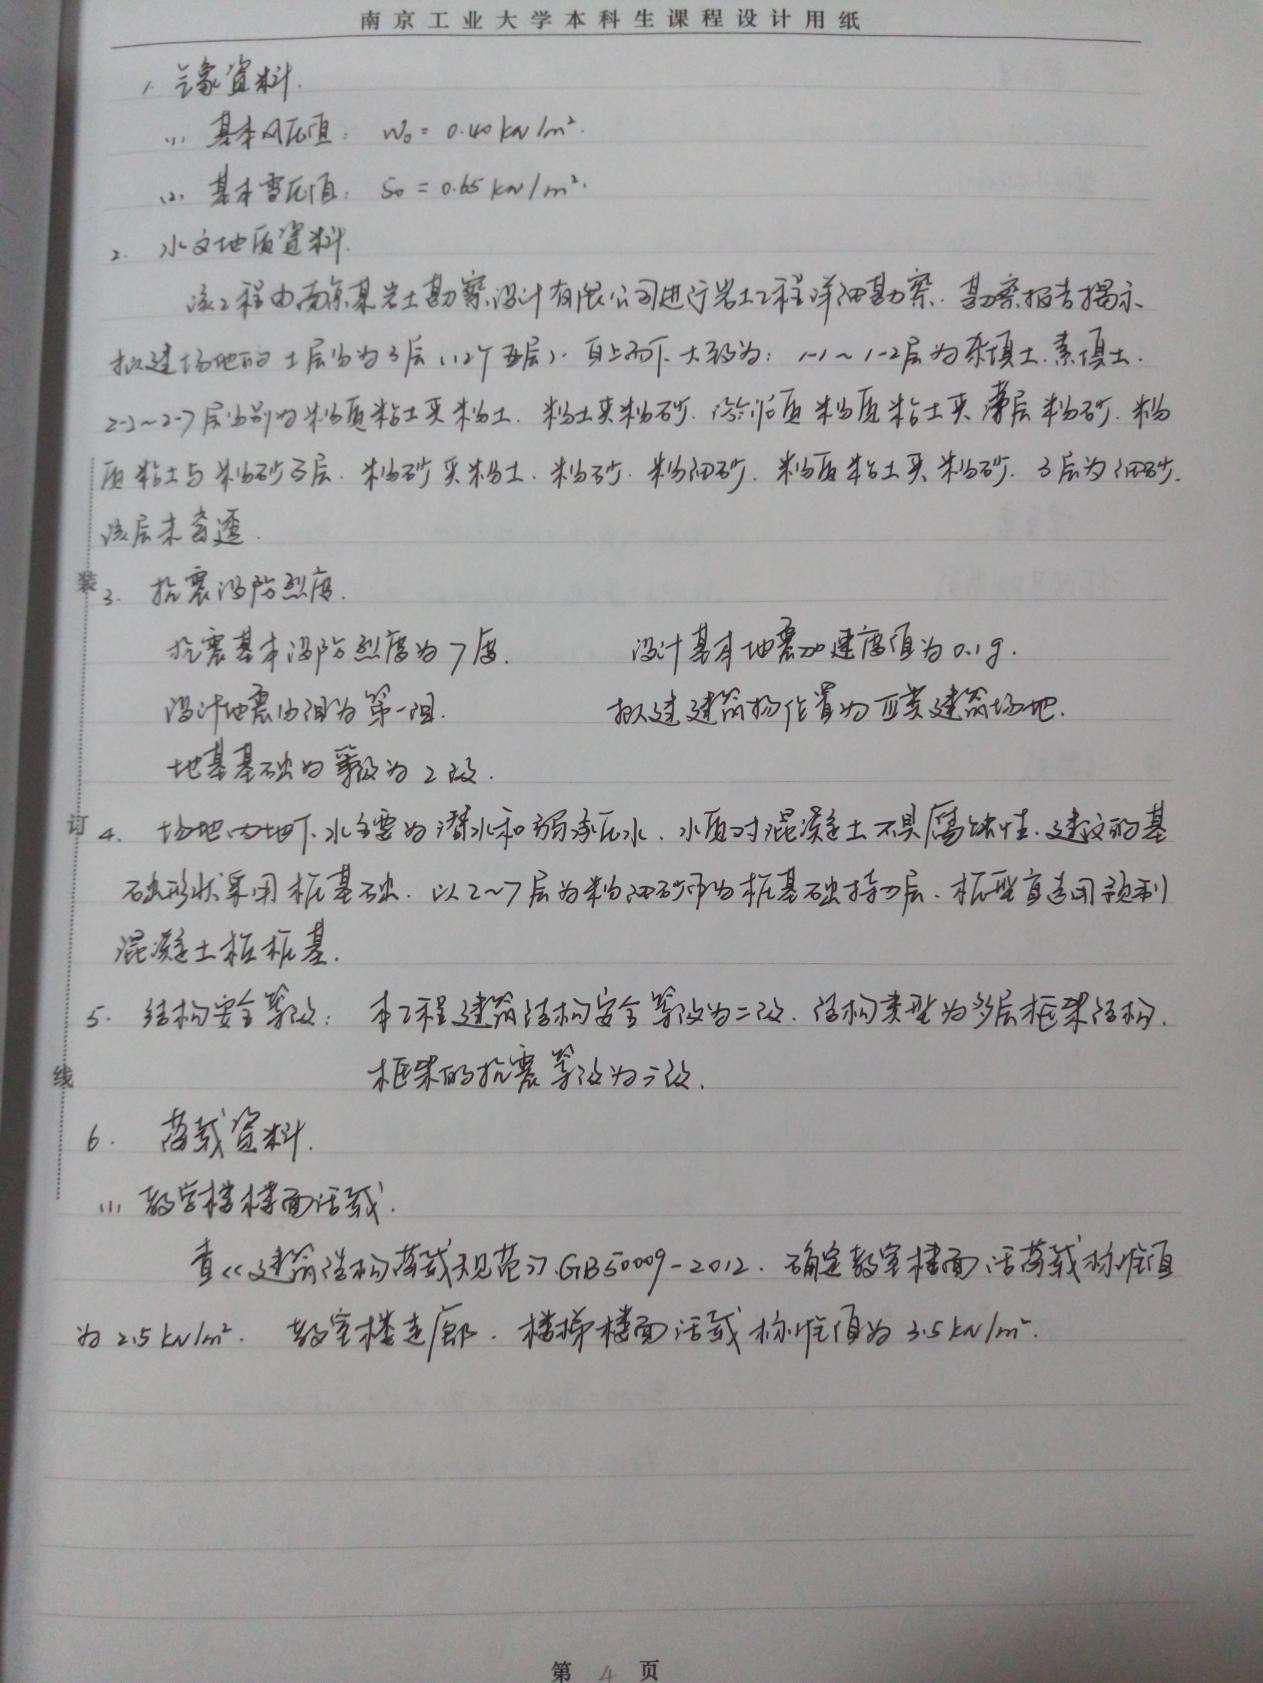 南京工业大学本科生课程设计用纸
1. 气象资料.
(1) 基本风压值: W₀ = 0.40 kN/m².
(2) 基本雪压值: S₀ = 0.65 kN/m².
2. 水文地质资料.
该工程由南京某岩土勘察设计有限公司进行岩土工程详细勘察. 勘察报告揭示、
拟建场地的土层分为3层(12个亚层). 自上而下大致为: 1-1~1-2层为杂填土.素填土.
2-2~2-7层分别为粉质粘土夹粉土. 粉土夹粉砂. 淤泥质粉质粘土夹薄层粉砂. 粉
质粘土与粉砂互层. 粉砂夹粉土. 粉砂. 粉细砂. 粉质粘土夹粉砂. 3层为细砂.
该层未穿透.
3. 抗震设防烈度.
抗震基本设防烈度为7度. 设计基本地震加速度值为0.1g.
设计地震分组为第一组. 拟建建筑场位置为Ⅱ类建筑场地.
地基基础为等级为2级.
4. 场地内地下水主要为潜水和弱承压水. 水质对混凝土不具腐蚀性. 建议的基
础形状采用桩基础. 以2~7层为粉细砂作为桩基础持力层. 桩型宜选用预制
混凝土桩桩基.
5. 结构安全等级: 本工程建筑结构安全等级为二级. 结构类型为多层框架结构.
框架的抗震等级为二级.
6. 荷载资料.
(1) 教学楼楼面活载.
查《建筑结构荷载规范》GB50009-2012. 确定教室楼面活荷载标准值
为2.5kN/m². 教室楼走廊. 楼梯楼面活载标准值为3.5kN/m².
装
订
线
第 4 页